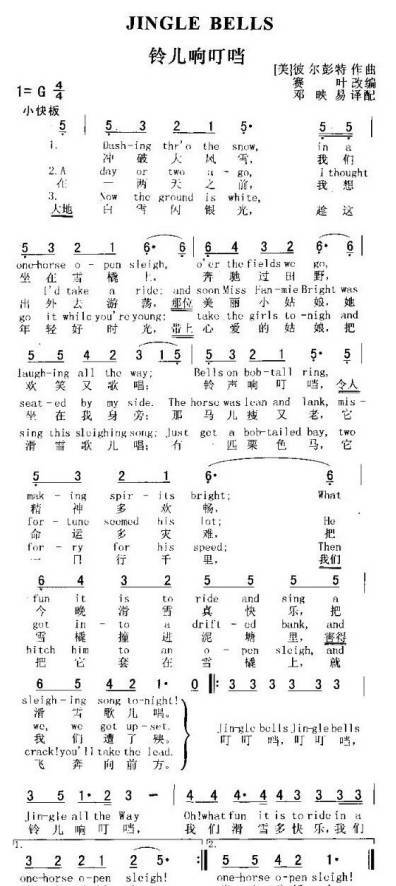 JINGLE BELLS
铃儿响叮当
[美]彼尔彭特作曲
赛 叶改编
邓 映 易译配
1=G 4/4
小快板
5 | 5 3 2 1 | 5 5· | 5
1. Dash-ing thr'o the snow, in a
冲 破 大 风 雪, 我们
2. A day or two a-go, I thought
在 一 两 天 之 前, 我 想
3. Now the ground is white,
大地 白 雪 闪 银 光, 趁 这
5 3 2 1 | 6· 6 | 6 4 3 2 | 6· 6
one-horse o-pen sleigh, o'er the fields we go,
坐 在 雪 橇 上, 奔 驰 过 田 野,
I'd take a ride; and soon Miss Fan-nie Bright was
出 外 去 游 荡, 那位 美 丽 小 姑 娘, 她
go it while you're young; take the girls to-nigh and
年 轻 好 时 光, 带上 心 爱 的 姑 娘, 把
5 5 4 2 | 3 (1 5) | 5 3 2 1 | 5· 5
laughing all the way; Bells on bob-tall ring,
欢 笑 又 歌 唱; 铃 声 响 叮 当, 令人
seat-ed by my side. The horse was lean and lank, mis-
坐 在 我 身 旁; 那 马 儿 瘦 又 老, 它
sing this sleighing song; Just get a bob-tailed bay, two
滑 雪 歌 儿 唱; 有 一 匹 栗 色 马, 它
5 3 2 1 | 6· 6
mak-ing spir-its bright; What
精 神 多 欢 畅,
for-tune seemed his lot; He
命 运 多 灾 难, 把
for-ry for his speed; Then
一 日 行 千 里, 我们
6 4 3 2 | 5 5 5 5
fun it is to ride and sing a
今 晚 滑 雪 真 快 乐, 把
got in-to a drift-ed bank, and
雪 橇 撞 进 泥 塘 里, 害得
hitch him to an o-pen sleigh, and
把 它 套 在 雪 橇 上, 就
6 5 4 2 | 1· 0 ‖: 3 3 3 3 3 3
sleigh-ing song to-night!
滑 雪 歌 儿 唱。
we, we got up-set.
我 们 遭 了 殃。
crack! you'll take the lead.
飞 奔 向 前 方。
Jin-gle bells Jin-gle bells
叮 叮 当, 叮 叮 当,
3 5 1· 2 | 3 — | 4 4 4· 4 | 4 3 3 3 3
Jin-gle all the Way Oh! what fun it is to ride in a
铃 儿 响 叮 当, 我 们 滑 雪 多 快 乐, 我 们
1. 3 2 2 1 | 2 5· :‖ 2. 5 5 4 2 | 1·
one-horse o-pen sleigh! one-horse o-pen sleigh!